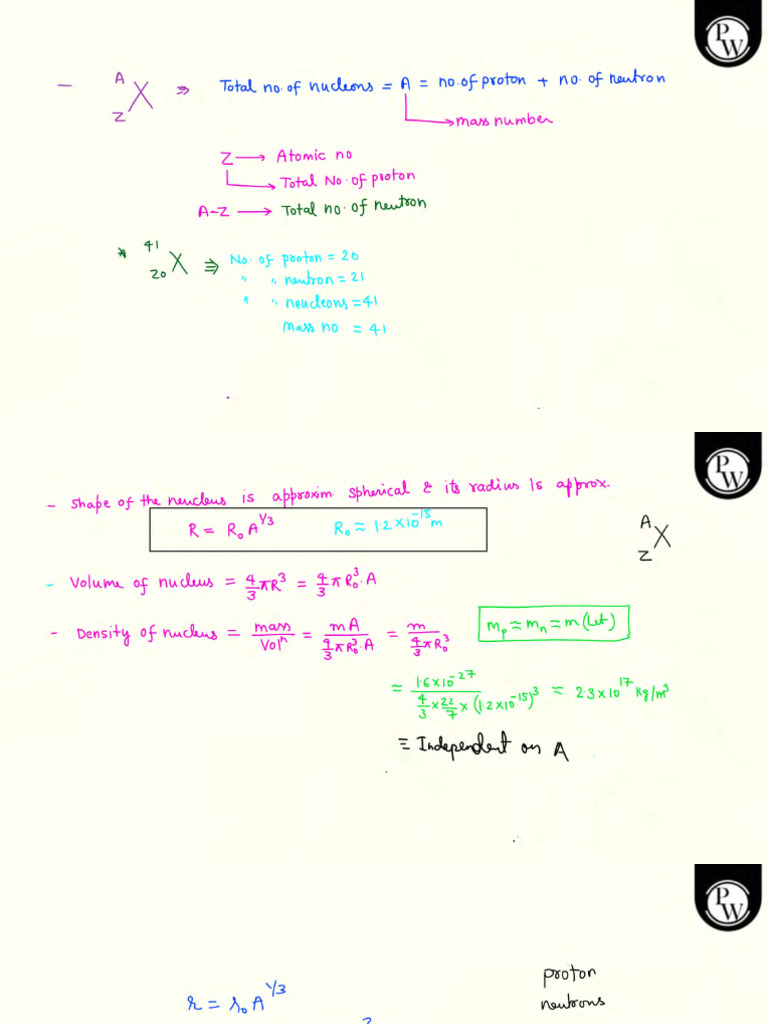 PW
– ᴬ_Z X ⇒ Total no. of nucleons = A = no. of proton + no. of neutron
mass number
Z → Atomic no
Total No. of proton
A–Z → Total no. of neutron
* ⁴¹₂₀X ⇛ No. of proton = 20
" " neutron = 21
" " neucleons = 41
mass no = 41
PW
– Shape of the neucleus is approxim spherical & its radius is approx.
R = R₀ A^1/3 R₀ ≈ 1.2×10⁻¹⁵ m
A
X
Z
– Volume of nucleus = 4/3 πR³ = 4/3 π R₀³.A
– Density of nucleus = mass/Volⁿ = mA / 4/3 πR₀³.A = m / 4/3 πR₀³
mₚ ≈ mₙ = m (let)
≈ 1.6×10⁻²⁷ / 4/3 × 22/7 × (1.2×10⁻¹⁵)³ ≈ 2.3×10¹⁷ kg/m³
≡ Independent on A
PW
proton
r = r₀ A^1/3
neutrons